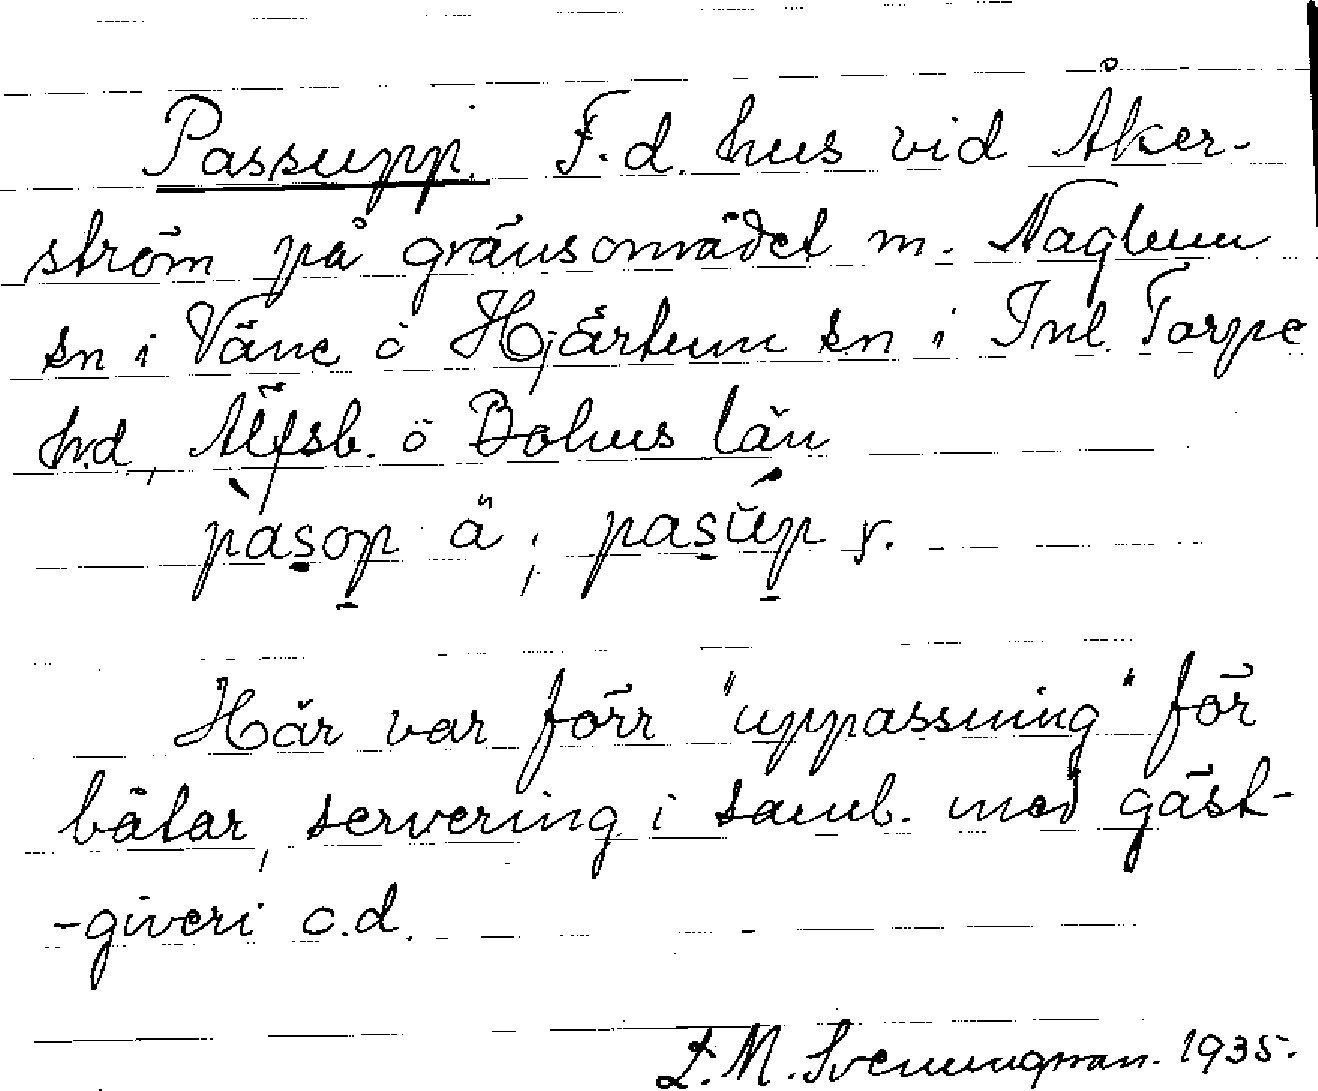 Passupp. F.d. hus vid Åker-
ström på gränsområdet m. Naglum
sn i Väne ö Hjärtum sn i Inl. Torpe
hd, Älfsb. ö Bohus län
påsop ä ; pasúp y.
Här var förr "uppassning" för
båtar, servering i samb. med gäst-
-giveri o.d.
L. M. Svenungsson. 1935.